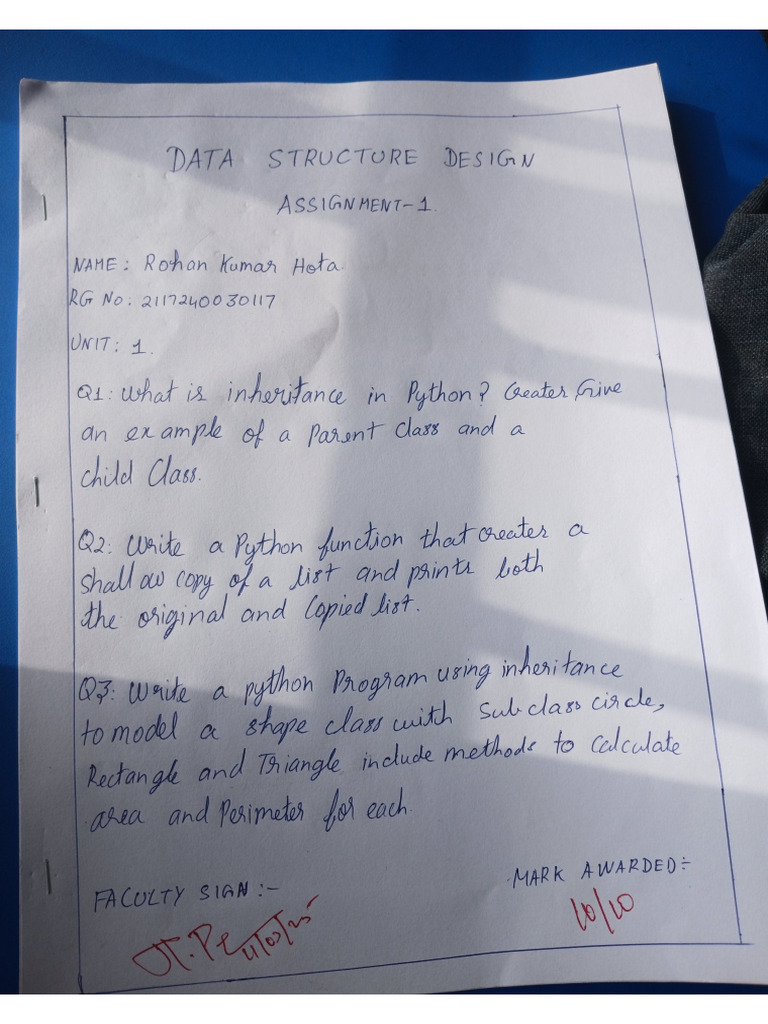 DATA STRUCTURE DESIGN
ASSIGNMENT-1.
NAME: Rohan Kumar Hota.
RG No: 2117240030117
UNIT: 1.
Q1: What is inheritance in Python? Creater, Give
an example of a Parent Class and a
child Class.
Q2: Write a Python function that creates a
shallow copy of a list and prints both
the original and Copied list.
Q3: Write a python Program using inheritance
to model a shape class with Subclass circle,
Rectangle and Triangle include methods to calculate
area and Perimeter for each.
FACULTY SIGN :-
MARK AWARDED:-
10/10